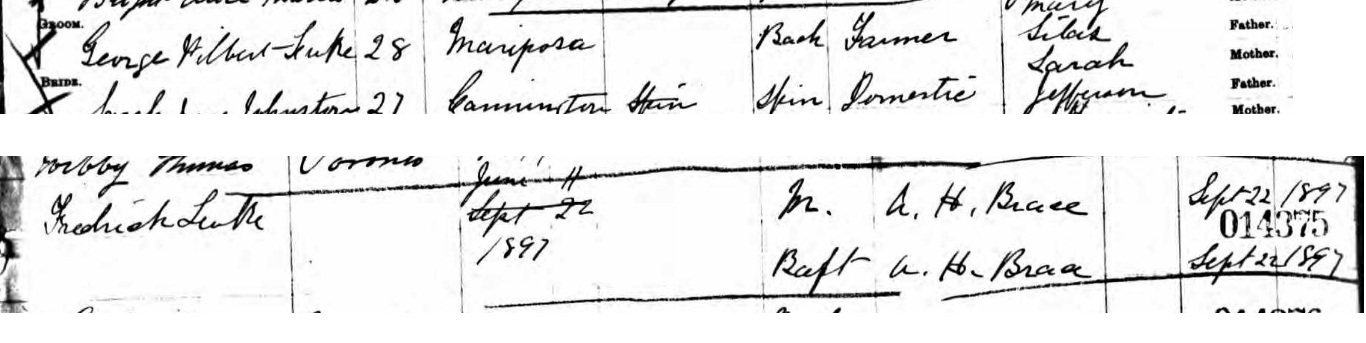 Mary
GROOM. George Wilbert Luke 28 Mariposa Bach Farmer Silas Father.
Sarah Mother.
BRIDE. Johnston 27 Cannington Spin Spin Domestic Jefferson Father.
Mother.
Thomas Toronto
June 11
Fredrick Luke Sept 22 M. A. H. Brace Sept 22 1897
014375
1897 Bapt A. H. Brace Sept 22 1897